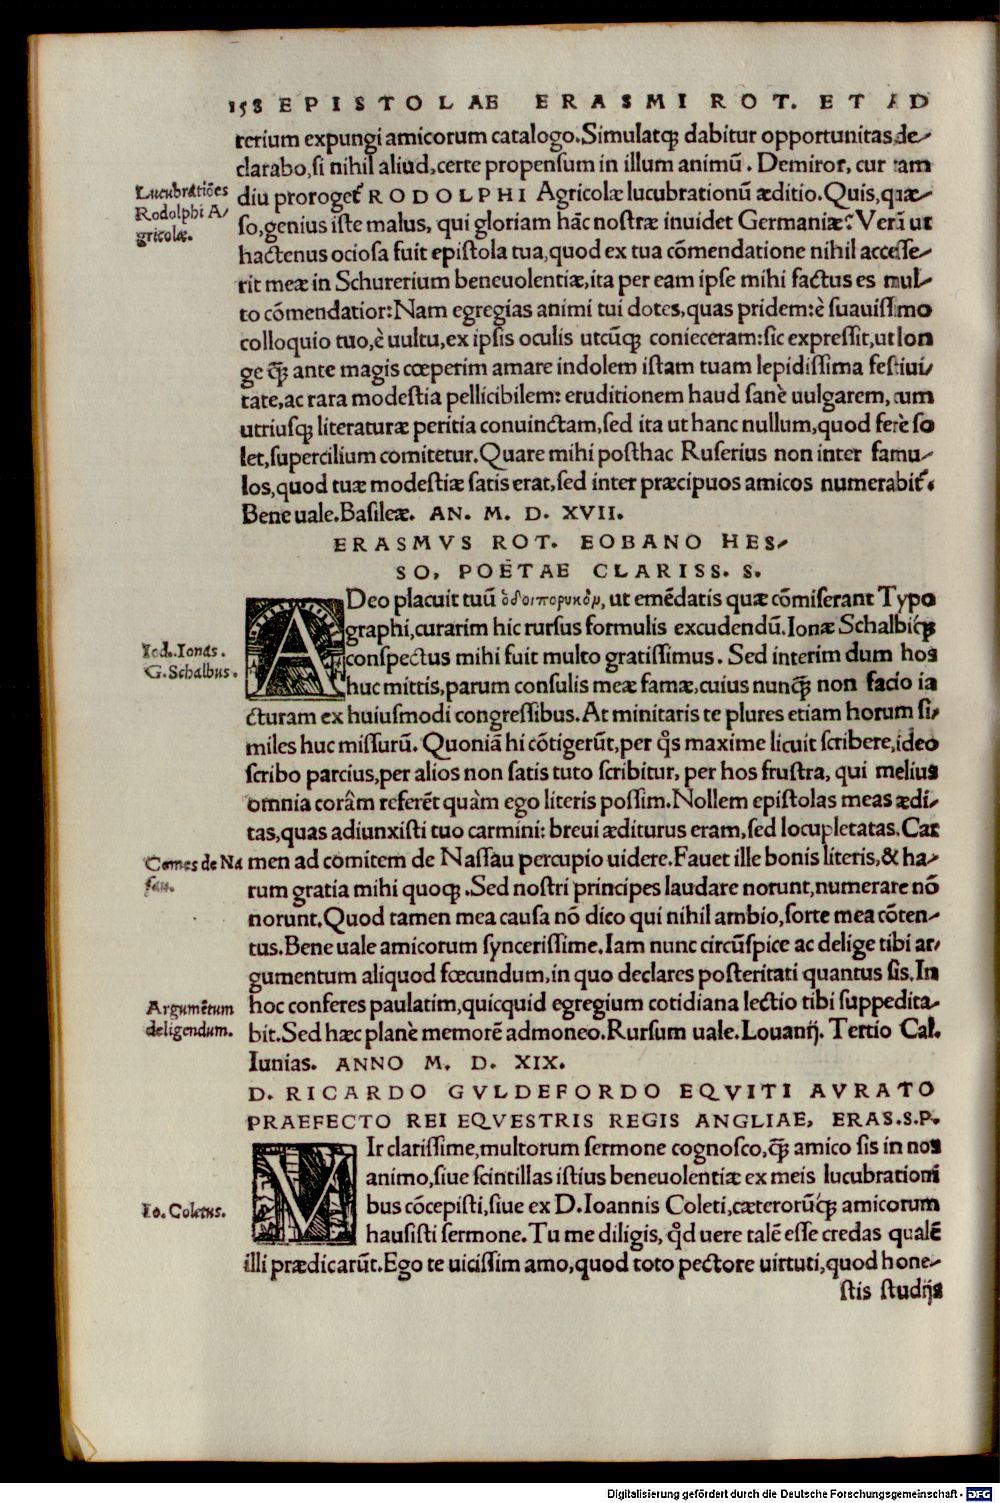 158 EPISTOLAE ERASMI ROT. ET AD
rerium expungi amicorum catalogo. Simulatq; dabitur opportunitas, de-
clarabo, si nihil aliud, certe propensum in illum animū. Demiror, cur tam
Lucubratiōes
Rodolphi A/
gricolæ.
diu prorogeť RODOLPHI Agricolæ lucubrationū æditio. Quis, quæ-
so, genius iste malus, qui gloriam hāc nostræ inuidet Germaniæ? Verū ut
hactenus ociosa fuit epistola tua, quod ex tua cōmendatione nihil accesse-
rit meæ in Schurerium beneuolentiæ, ita per eam ipse mihi factus es mul-
to cōmendatior: Nam egregias animi tui dotes, quas pridem: è suauissimo
colloquio tuo, è uultu, ex ipsis oculis utcūq; conieceram: sic expressit, ut lon
ge q̃; ante magis cœperim amare indolem istam tuam lepidissima festiui/
tate, ac rara modestia pellicibilem: eruditionem haud sanè uulgarem, cum
utriusq; literaturæ peritia conuinctam, sed ita ut hanc nullum, quod ferè so
let, supercilium comitetur. Quare mihi posthac Ruserius non inter famu-
los, quod tuæ modestiæ satis erat, sed inter præcipuos amicos numerabiť.
Bene uale. Basileæ. AN. M. D. XVII.
ERASMVS ROT. EOBANO HES-
SO, POËTAE CLARISS. S.
ADeo placuit tuū ὁδοιπορικὸν, ut emēdatis quæ cōmiserant Typo
graphi, curarim hic rursus formulis excudendū. Ionæ Schalbiq́;
Iod. Ionas.
G. Schalbus.
conspectus mihi fuit multo gratissimus. Sed interim dum hos
huc mittis, parum consulis meæ famæ, cuius nunq̃; non facio ia
cturam ex huiusmodi congressibus. At minitaris te plures etiam horum si/
miles huc missurū. Quoniā hi cōtigerūt, per q̊s maxime licuit scribere, ideo
scribo parcius, per alios non satis tuto scribitur, per hos frustra, qui melius
omnia corâm referēt quàm ego literis possim. Nollem epistolas meas ædi/
tas, quas adiunxisti tuo carmini: breui æditurus eram, sed locupletatas. Car
Comes de Na
sau.
men ad comitem de Nassau percupio uidere. Fauet ille bonis literis, & ha-
rum gratia mihi quoq;. Sed nostri principes laudare norunt, numerare nō
norunt. Quod tamen mea causa nō dico qui nihil ambio, sorte mea cōten-
tus. Bene uale amicorum syncerissime. Iam nunc circūspice ac delige tibi ar/
gumentum aliquod fœcundum, in quo declares posteritati quantus sis. In
Argumētum
deligendum.
hoc conferes paulatim, quicquid egregium cotidiana lectio tibi suppedita-
bit. Sed hæc planè memorē admoneo. Rursum uale. Louanij. Tertio Cal.
Iunias. ANNO M. D. XIX.
D. RICARDO GVLDEFORDO EQVITI AVRATO
PRAEFECTO REI EQVESTRIS REGIS ANGLIAE, ERAS. S. P.
VIr clarissime, multorum sermone cognosco, q̃; amico sis in nos
animo, siue scintillas istius beneuolentiæ ex meis lucubrationi
Io. Coletus.
bus cōcepisti, siue ex D. Ioannis Coleti, cæterorūq́; amicorum
hausisti sermone. Tu me diligis, q̊d uere talē esse credas qualē
illi prædicarūt. Ego te uicissim amo, quod toto pectore uirtuti, quod hone-
stis studijs
Digitalisierung gefördert durch die Deutsche Forschungsgemeinschaft - DFG